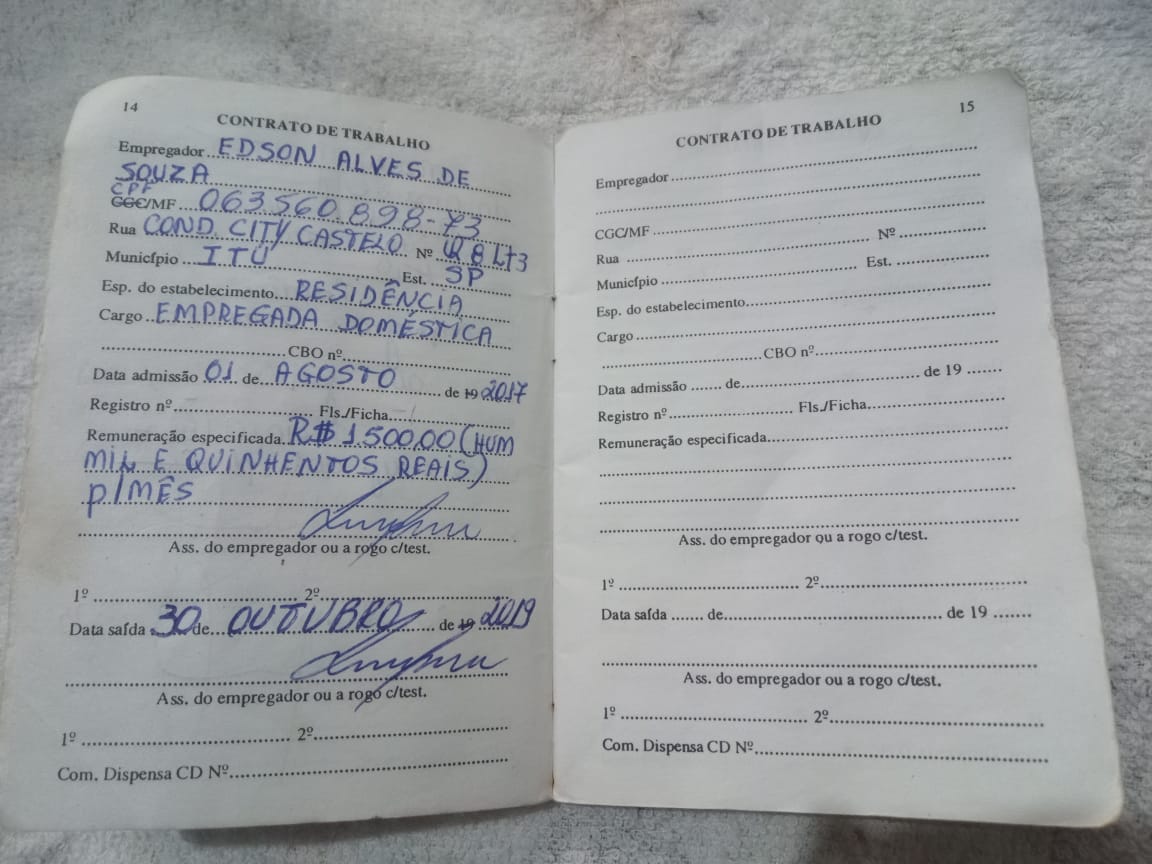 14
CONTRATO DE TRABALHO
Empregador EDSON ALVES DE
SOUZA
CPF
CGC/MF 063560.898-73
Rua COND. CITY CASTELO Nº Q8 Lt3
Município ITÚ Est. SP
Esp. do estabelecimento RESIDÊNCIA
Cargo EMPREGADA DOMÉSTICA
CBO nº
Data admissão 01 de AGOSTO de 19 2017
Registro nº Fls./Ficha
Remuneração especificada R$ 1.500,00 (HUM
MIL E QUINHENTOS REAIS)
P/MÊS
Ass. do empregador ou a rogo c/test.
1º 2º
Data saída 30 de OUTUBRO de 19 2019
Ass. do empregador ou a rogo c/test.
1º 2º
Com. Dispensa CD Nº
15
CONTRATO DE TRABALHO
Empregador
CGC/MF
Rua Nº
Município Est.
Esp. do estabelecimento
Cargo
CBO nº
Data admissão de de 19
Registro nº Fls./Ficha
Remuneração especificada
Ass. do empregador ou a rogo c/test.
1º 2º
Data saída de de 19
Ass. do empregador ou a rogo c/test.
1º 2º
Com. Dispensa CD Nº